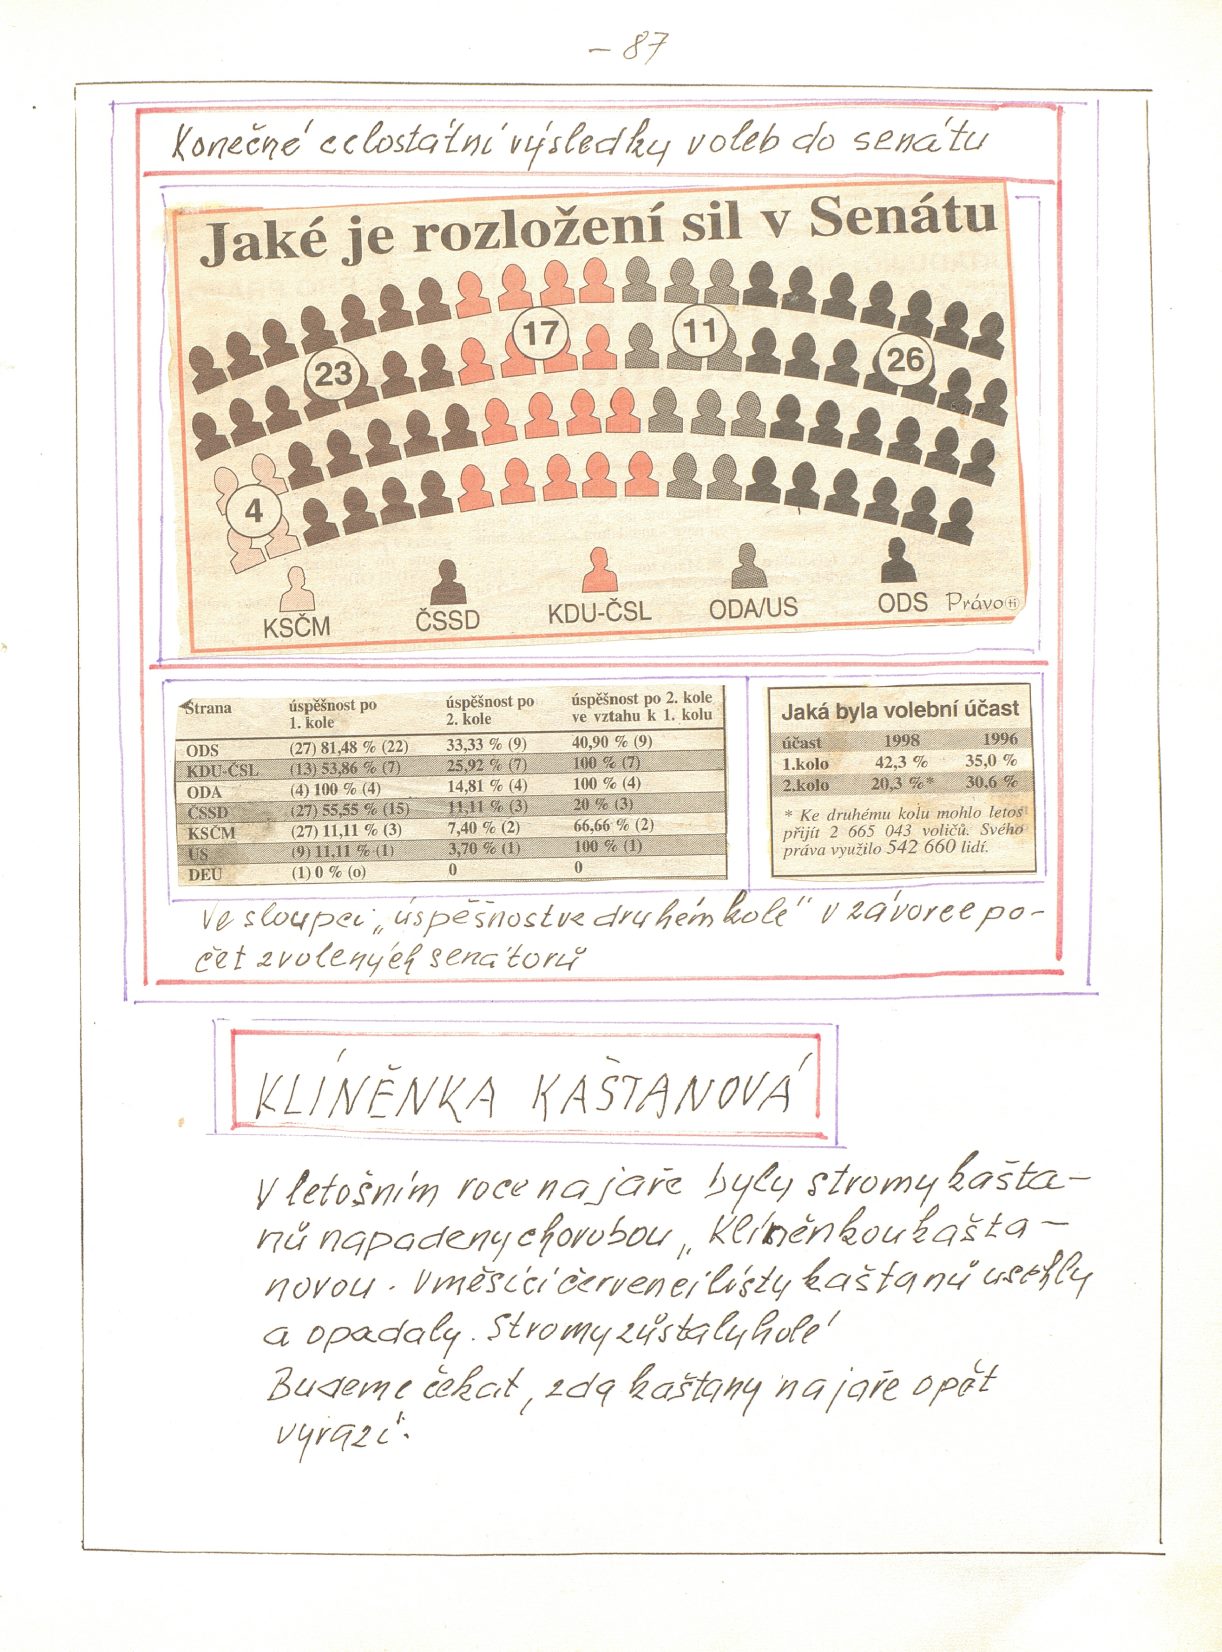 – 87
Konečné celostátní výsledky voleb do senátu
Jaké je rozložení sil v Senátu
23
17
11
26
4
KSČM
ČSSD
KDU-ČSL
ODA/US
ODS
Právo
Strana úspěšnost po 1. kole úspěšnost po 2. kole úspěšnost po 2. kole ve vztahu k 1. kolu
ODS (27) 81,48 % (22) 33,33 % (9) 40,90 % (9)
KDU-ČSL (13) 53,86 % (7) 25,92 % (7) 100 % (7)
ODA (4) 100 % (4) 14,81 % (4) 100 % (4)
ČSSD (27) 55,55 % (15) 11,11 % (3) 20 % (3)
KSČM (27) 11,11 % (3) 7,40 % (2) 66,66 % (2)
US (9) 11,11 % (1) 3,70 % (1) 100 % (1)
DEU (1) 0 % (o) 0 0
Jaká byla volební účast
účast 1998 1996
1.kolo 42,3 % 35,0 %
2.kolo 20,3 %* 30,6 %
* Ke druhému kolu mohlo letos
přijít 2 665 043 voličů. Svého
práva využilo 542 660 lidí.
Ve sloupci „úspěšnost ve druhém kole" v závorce po-
čet zvolených senátorů
KLÍNĚNKA KAŠTANOVÁ
V letošním roce na jaře byly stromy kašta-
nů napadeny chorobou „Klíněnkou kašta-
novou. V měsíci červenci listy kaštanů uschly
a opadaly. Stromy zůstaly holé
Budeme čekat, zda kaštany na jaře opět
vyrazí.